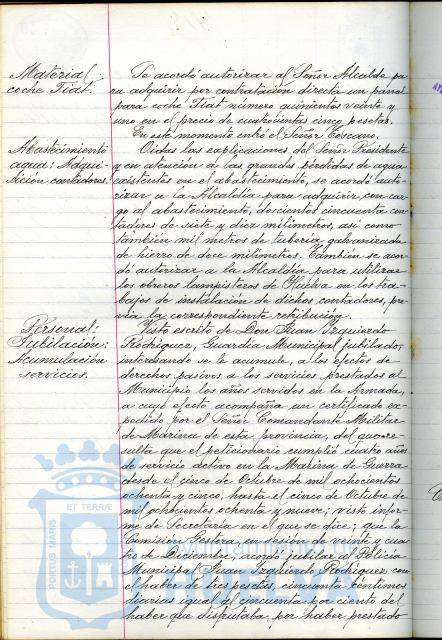 Material
coche Fiat.
Se acordó autorizar al Señor Alcalde pa
ra adquirir por contratación directa un panal
para coche Fiat número quinientos veinte y
uno en el precio de cuatrocientas cinco pesetas.
En este momento entró el Señor Toscano.
Abastecimiento
agua: Adqui-
sición contadores.
Oidas las explicaciones del Señor Presidente
y en atención a las grandes pérdidas de agua
existentes en el abastecimiento, se acordó auto-
rizar a la Alcaldía para adquirir, con car-
go al abastecimiento, doscientos cincuenta con
tadores de siete y diez milímetros, así como
también mil metros de tubería galvanizada
de hierro de doce milímetros. También se acor
dó autorizar a la Alcaldía para utilizar
los obreros lampisteros de Huelva en los tra-
bajos de instalación de dichos contadores, pre-
via la correspondiente retribución.
Personal:
Jubilación:
Acumulación
servicios.
Visto escrito de Don Juan Izquierdo
Rodríguez, Guardia Municipal jubilado,
interesando se le acumule, a los efectos de
derechos pasivos a los servicios prestados al
Municipio los años servidos en la Armada,
a cuyo efecto acompaña un certificado ex-
pedido por el Señor Comandante Militar
de Marina de esta provincia, del que re-
sulta que el peticionario cumplió cuatro años
de servicio activo en la Marina de Guerra
desde el cinco de Octubre de mil ochocientos
ochenta y cinco, hasta el cinco de Octubre de
mil ochocientos ochenta y nueve; visto infor-
me de Secretaría en el que se dice; que la
Comisión Gestora, en sesión de veinte y cua
tro de Diciembre, acordó jubilar al Policía
Municipal Juan Izquierdo Rodríguez con
el haber de tres pesetas, cincuenta céntimos
diarias igual al cincuenta por ciento del
haber que disfrutaba, por haber prestado
PORTUS MARIS
ET TERRAE
HUELVA